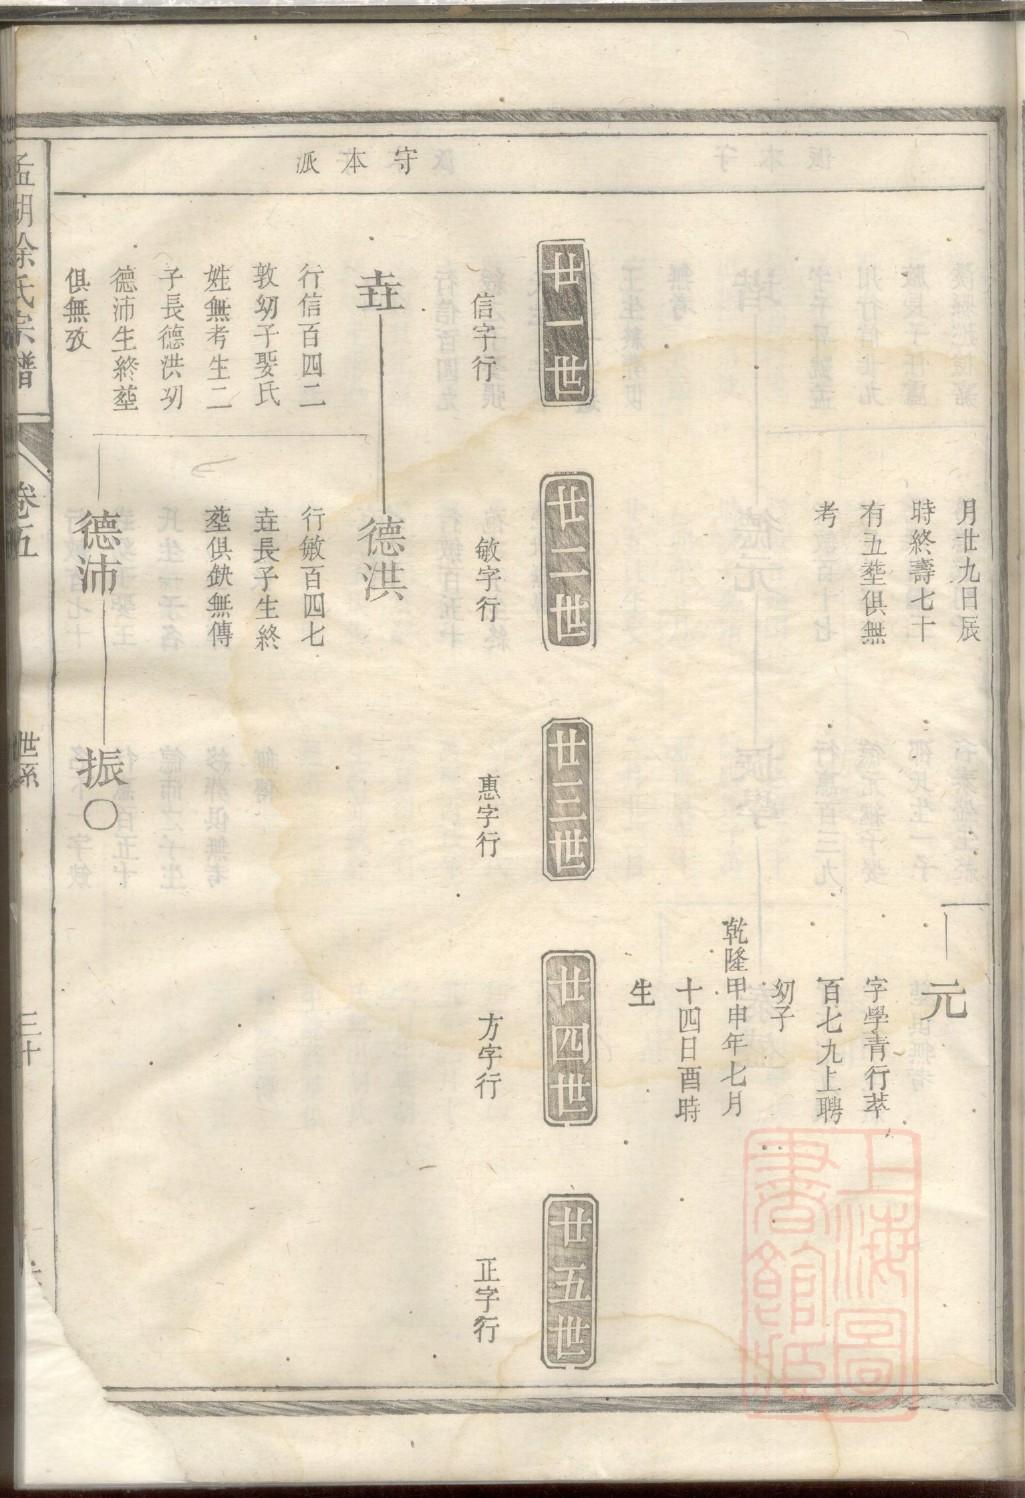 守本派
月廿九日辰
時終壽七十
有五塟俱無
考
元
字學青行萃
百七九上聘
幼子
乾隆甲申年七月
十四日酉時
生
廿一世
廿二世
廿三世
廿四世
廿五世
信字行
敏字行
惠字行
方字行
正字行
垚
行信百四二
敦幼子娶氏
姓無考生二
子長德洪幼
德沛生終塟
俱無攷
德洪
行敏百四七
垚長子生終
塟俱缺無傳
德沛
振〇
孟湖徐氏宗譜
卷五
世系
三十
上海圖
書館藏